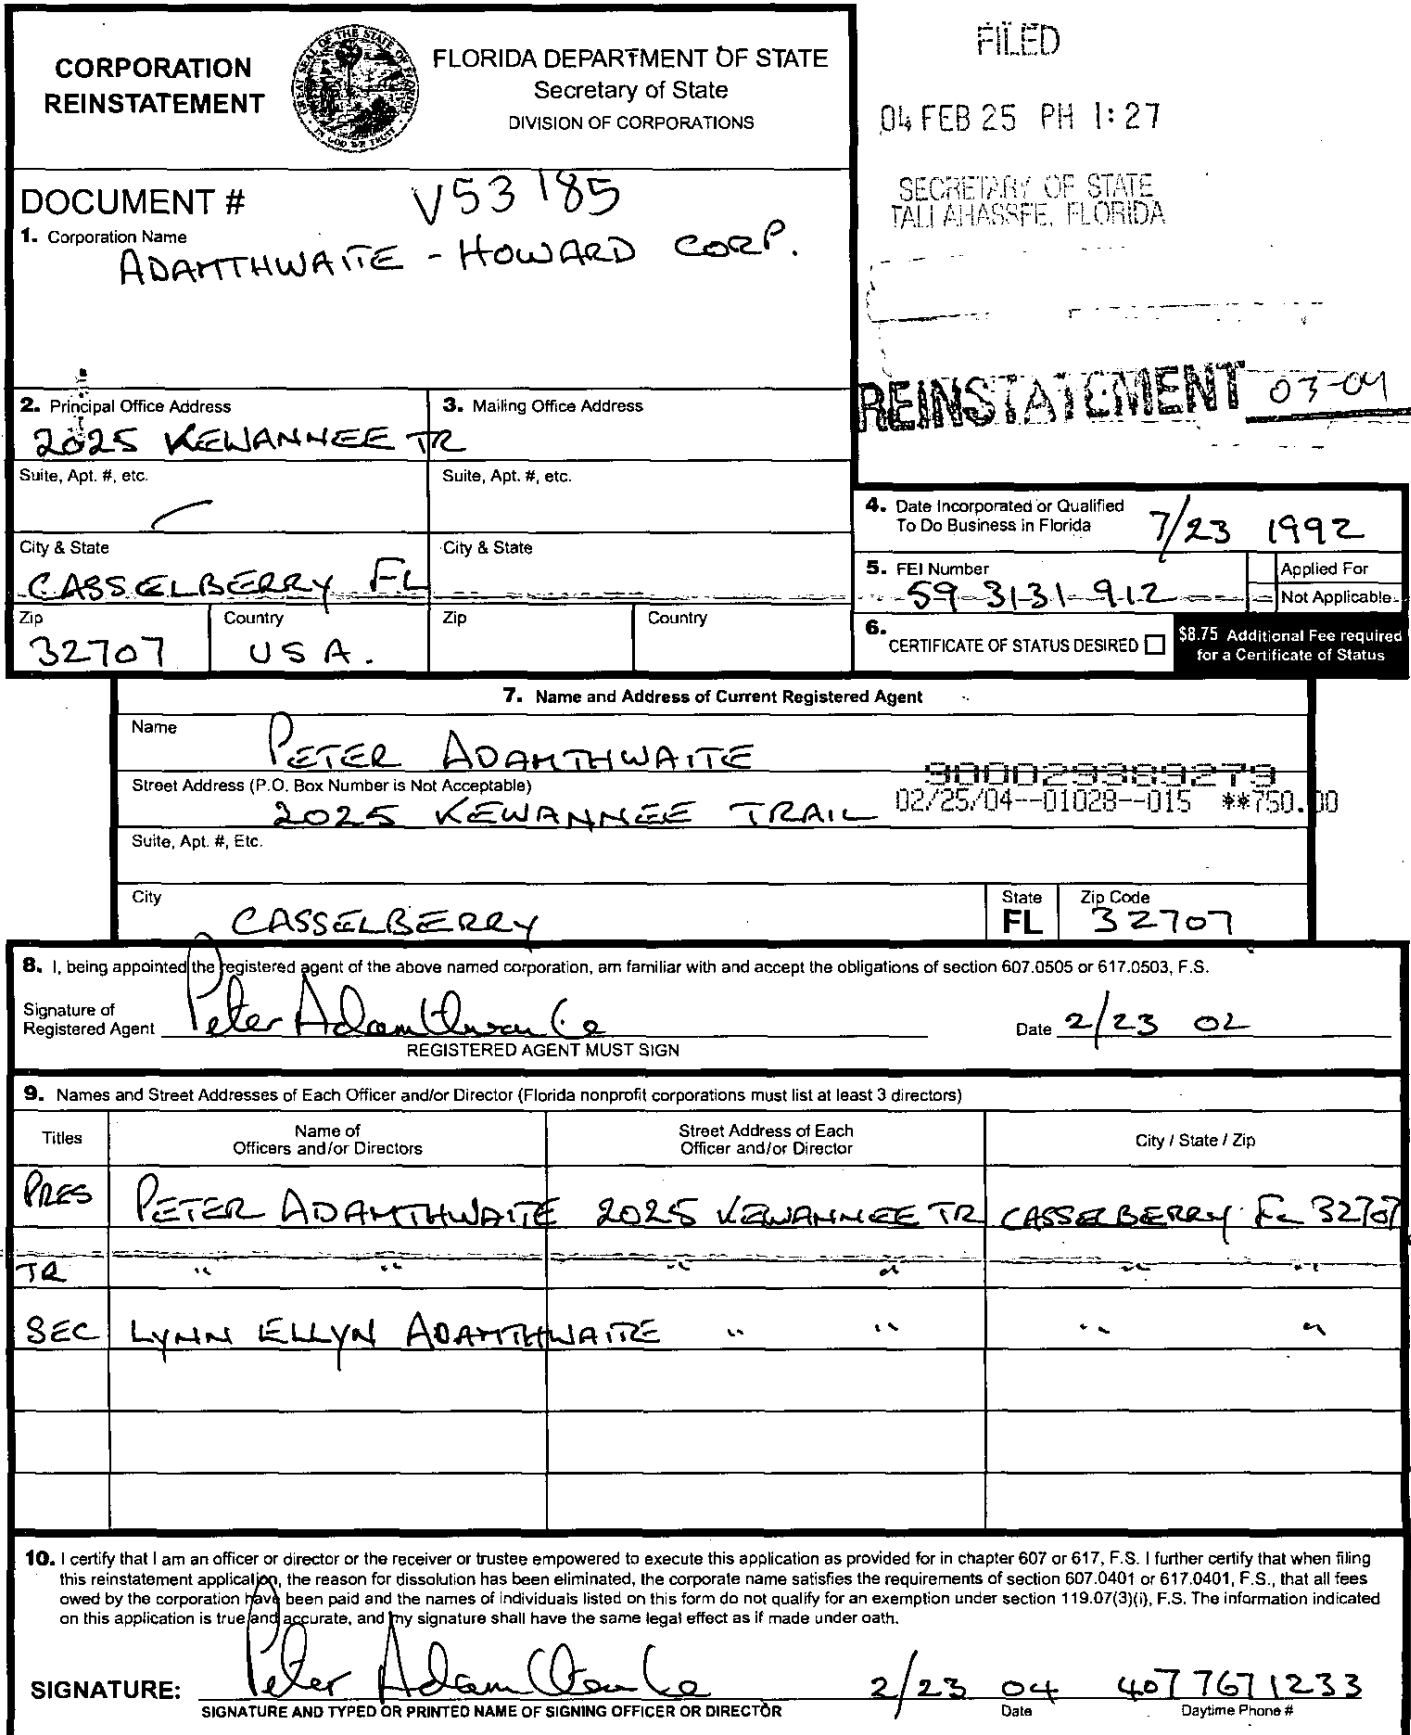 CORPORATION
REINSTATEMENT
FLORIDA DEPARTMENT OF STATE
Secretary of State
DIVISION OF CORPORATIONS
FILED
04 FEB 25 PH 1:27
SECRETARY OF STATE
TALLAHASSEE, FLORIDA
DOCUMENT # V53185
1. Corporation Name
ADAMTHWAITE - HOWARD CORP.
REINSTATEMENT 03-04
2. Principal Office Address
2025 KEWANNEE TR
3. Mailing Office Address
Suite, Apt. #, etc.
Suite, Apt. #, etc.
City & State
CASSELBERRY FL
City & State
Zip
32707
Country
USA.
Zip
Country
4. Date Incorporated or Qualified
To Do Business in Florida
7/23 1992
5. FEI Number
59-3131-912
Applied For
Not Applicable
6. CERTIFICATE OF STATUS DESIRED
$8.75 Additional Fee required
for a Certificate of Status
7. Name and Address of Current Registered Agent
Name
PETER ADAMTHWAITE
Street Address (P.O. Box Number is Not Acceptable)
2025 KEWANNEE TRAIL
900029389279
02/25/04--01028--015 **750.00
Suite, Apt. #, Etc.
City
CASSELBERRY
State
FL
Zip Code
32707
8. I, being appointed the registered agent of the above named corporation, am familiar with and accept the obligations of section 607.0505 or 617.0503, F.S.
Signature of
Registered Agent Peter Adamthwaite
REGISTERED AGENT MUST SIGN
Date 2/23 02
9. Names and Street Addresses of Each Officer and/or Director (Florida nonprofit corporations must list at least 3 directors)
Titles
Name of
Officers and/or Directors
Street Address of Each
Officer and/or Director
City / State / Zip
PRES PETER ADAMTHWAITE 2025 KEWANNEE TR CASSELBERRY FL 32707
TR " " " " " "
SEC LYNN ELLYN ADAMTHWAITE " " " "
10. I certify that I am an officer or director or the receiver or trustee empowered to execute this application as provided for in chapter 607 or 617, F.S. I further certify that when filing
this reinstatement application, the reason for dissolution has been eliminated, the corporate name satisfies the requirements of section 607.0401 or 617.0401, F.S., that all fees
owed by the corporation have been paid and the names of individuals listed on this form do not qualify for an exemption under section 119.07(3)(i), F.S. The information indicated
on this application is true and accurate, and my signature shall have the same legal effect as if made under oath.
SIGNATURE: Peter Adamthwaite 2/23 04 4077671233
SIGNATURE AND TYPED OR PRINTED NAME OF SIGNING OFFICER OR DIRECTOR
Date
Daytime Phone #